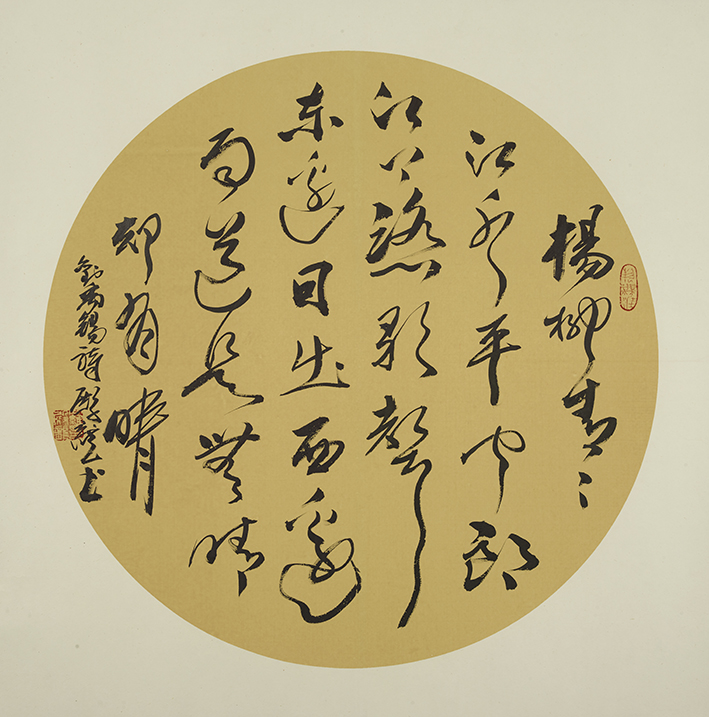 楊柳青〻
江水平聞郎
江上踏歌聲
東邊日出西邊
雨道是無晴
却有晴
劉禹錫詩 书